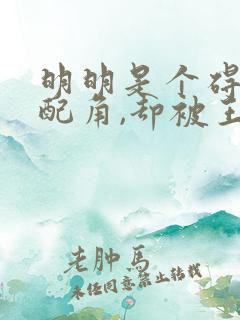 明明是个碍
配角,却被主
老肿马
未经同意禁止转载